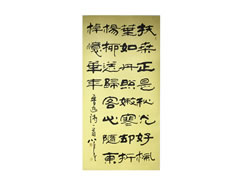 扶桑正是秋光好楓
葉如丹照嫩寒却折
楊柳送歸客心隨東
棹憶華年